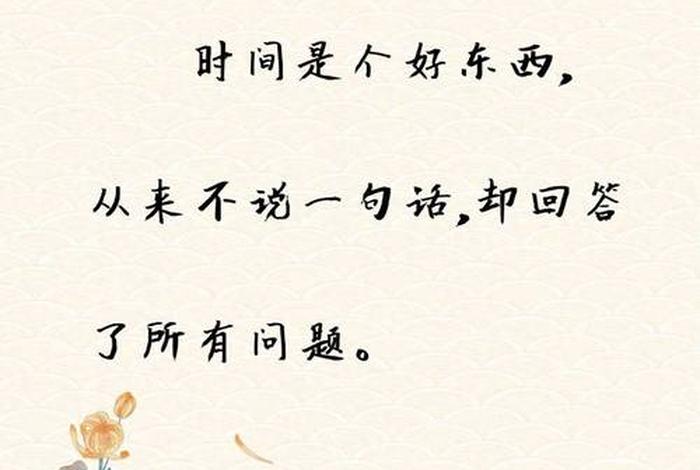 时间是个好东西,
从来不说一句话,却回答
了所有问题。